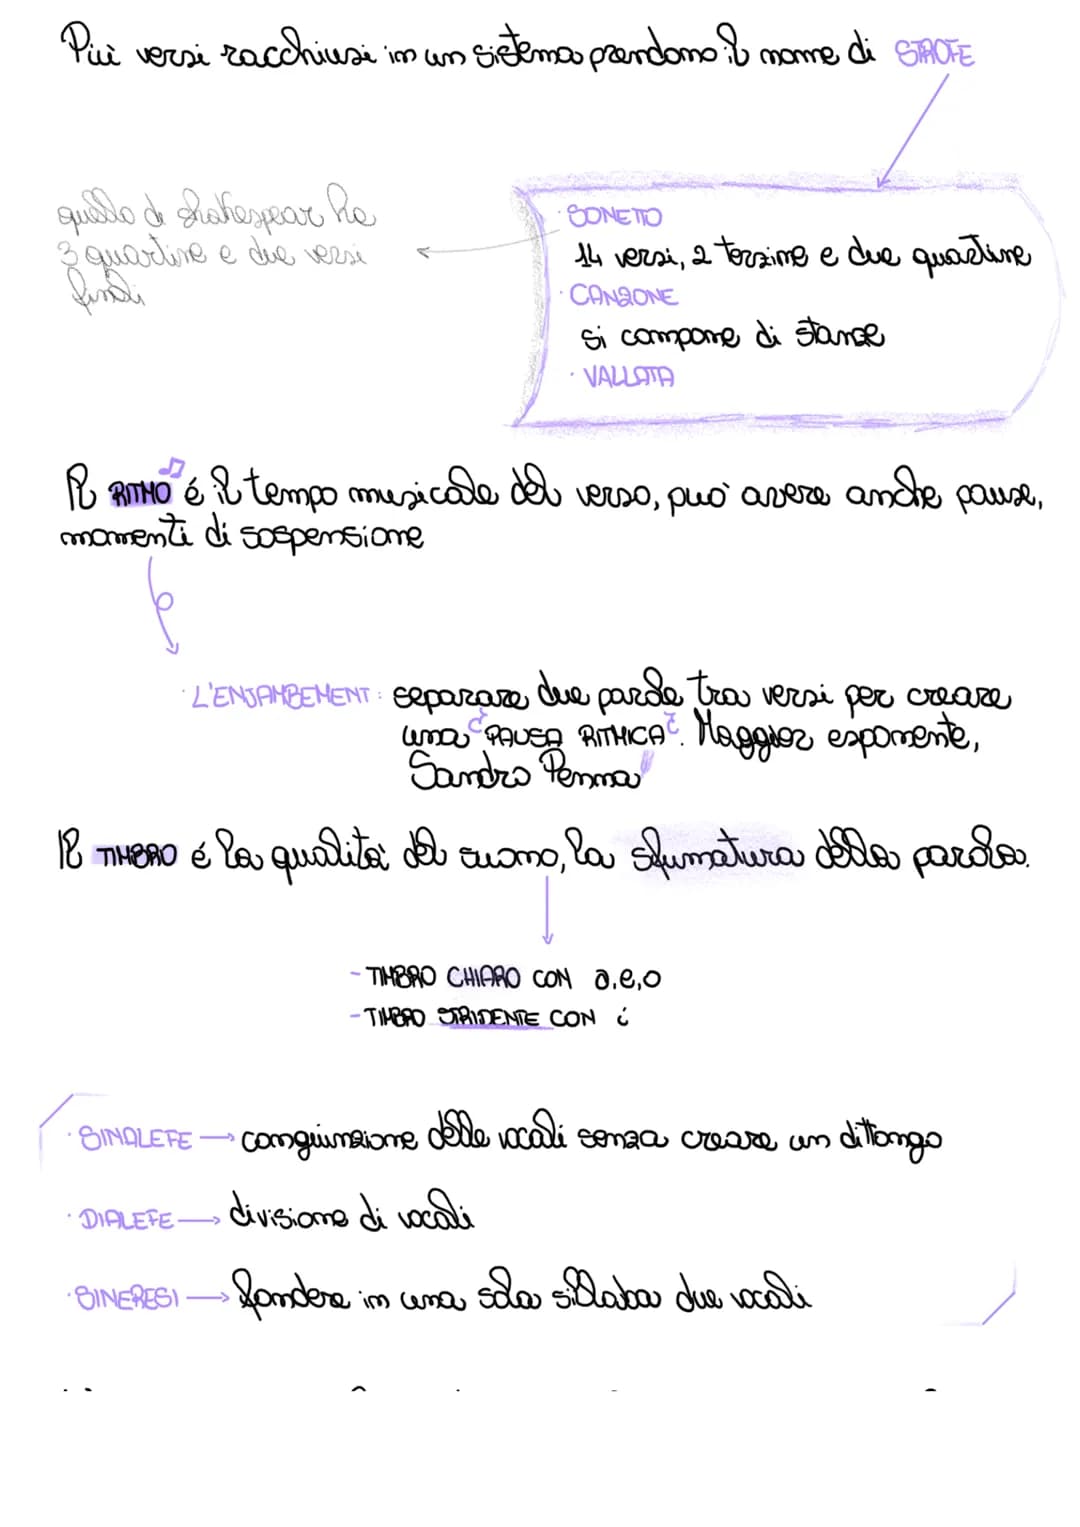 Più versi racchiusi in un sistema prendono il nome di STROFE
quello di shakespear ha
3 quartine e due versi
finali
· SONETTO
14 versi, 2 terzine e due quartine
· CANZONE
si compone di stanze
· VALLATA
Il RITMO é il tempo musicale del verso, puo' avere anche pause,
momenti di sospensione
· L'ENJAMBEMENT: separare due parole tra versi per creare
una PAUSA RITMICA. Maggior esponente,
Sandro Penna
Il TIMBRO é la qualità del suono, la sfumatura della parola.
- TIMBRO CHIARO CON a,e,o
- TIMBRO STRIDENTE CON i
· SINALEFE → congiunzione delle vocali senza creare un dittongo
· DIALEFE → divisione di vocali
· SINERESI → fondere in una sola sillaba due vocali